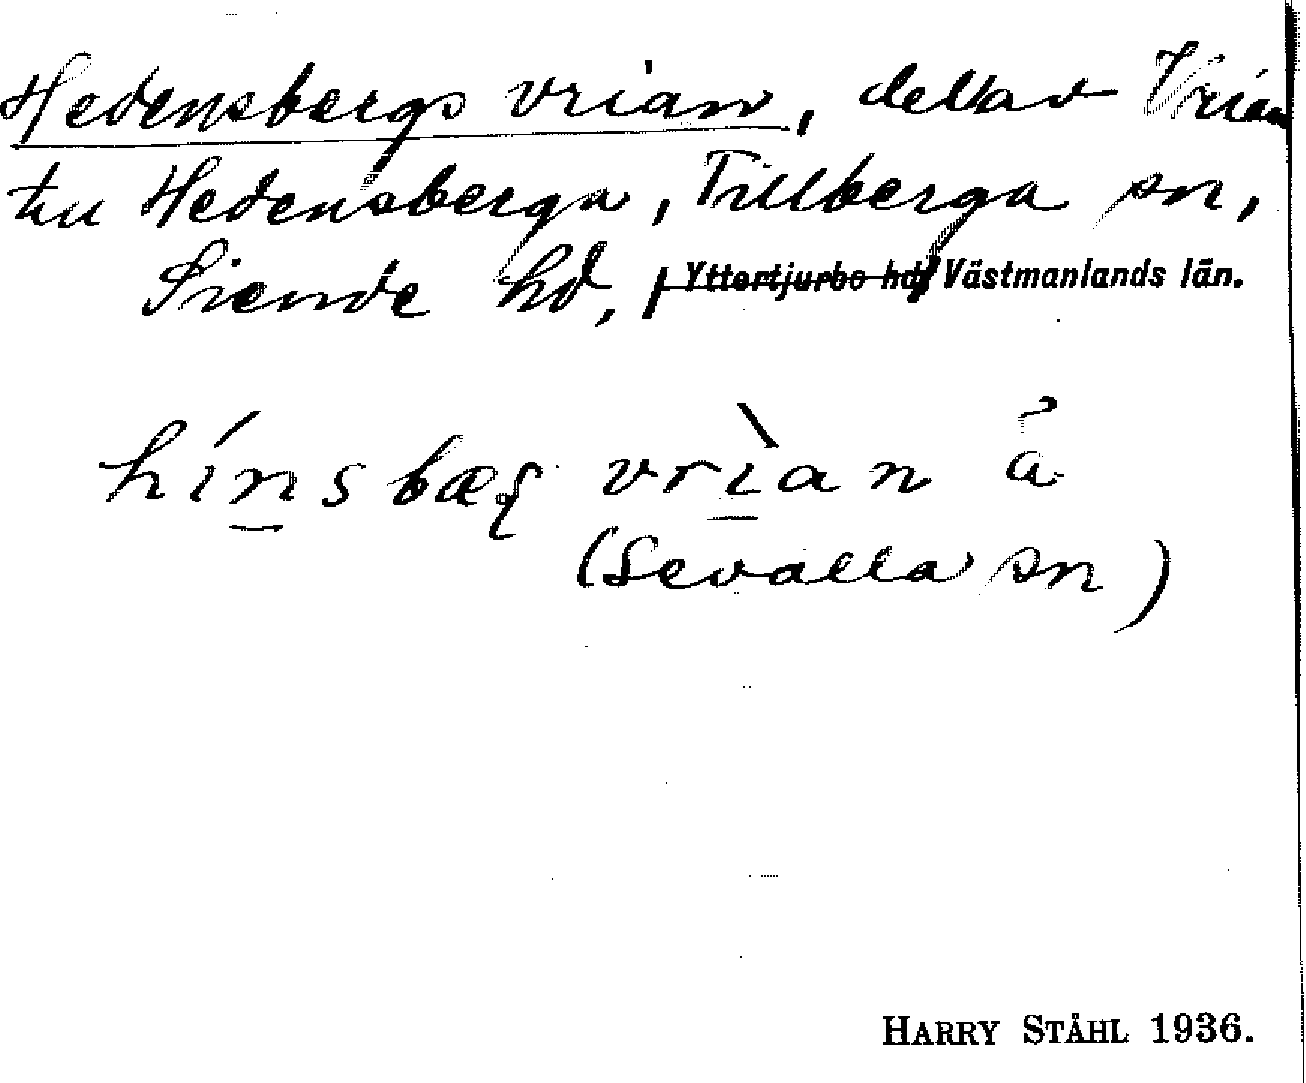 Hedensbergs vrían, del av Vrían
till Hedensberga, Tillberga sn,
Siende hd, Yttertjurbo hd, Västmanlands län.
hínsbæg vrìan å
(Sevalla sn)
HARRY STÅHL 1936.